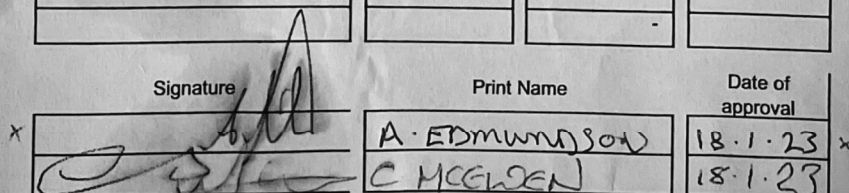 Signature Print Name Date of
approval
x A. EDMUNDSON 18.1.23 x
C MCEWEN 18.1.23